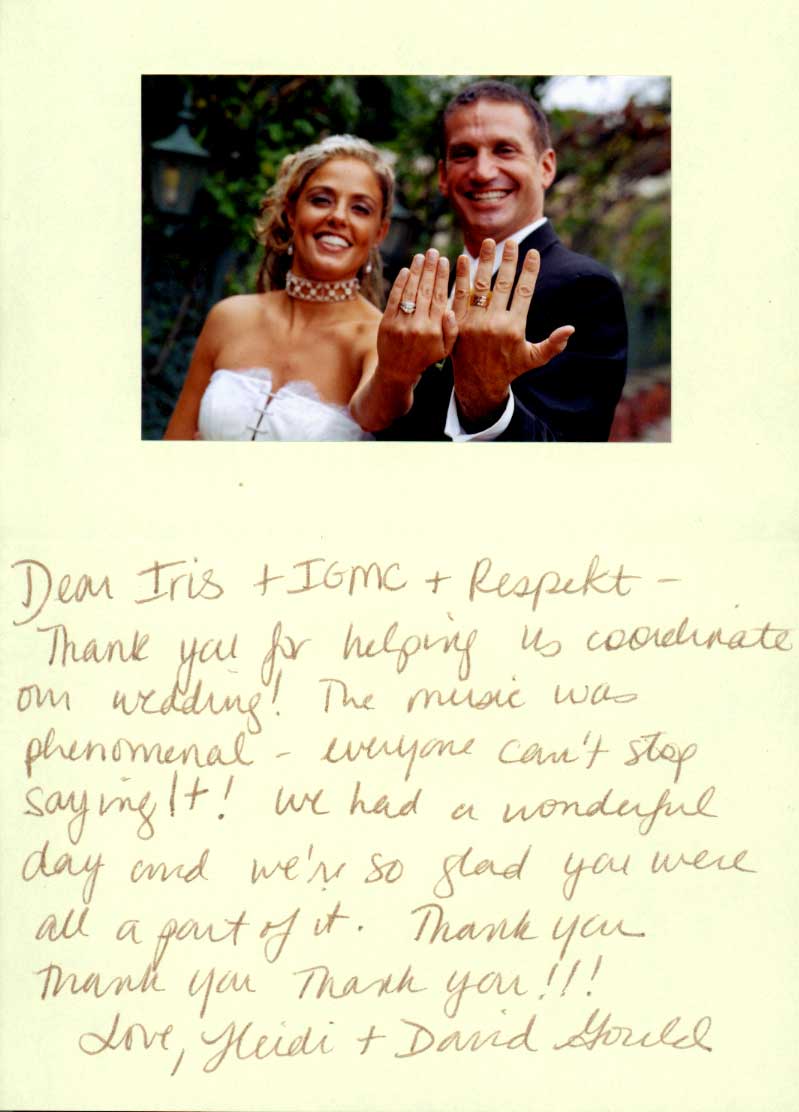 Dear Iris + IGMC + Respekt -
Thank you for helping us coordinate
our wedding! The music was
phenomenal - everyone can't stop
saying It! We had a wonderful
day and we're so glad you were
all a part of it. Thank you
Thank you Thank you!!!
Love, Heidi + David Gould